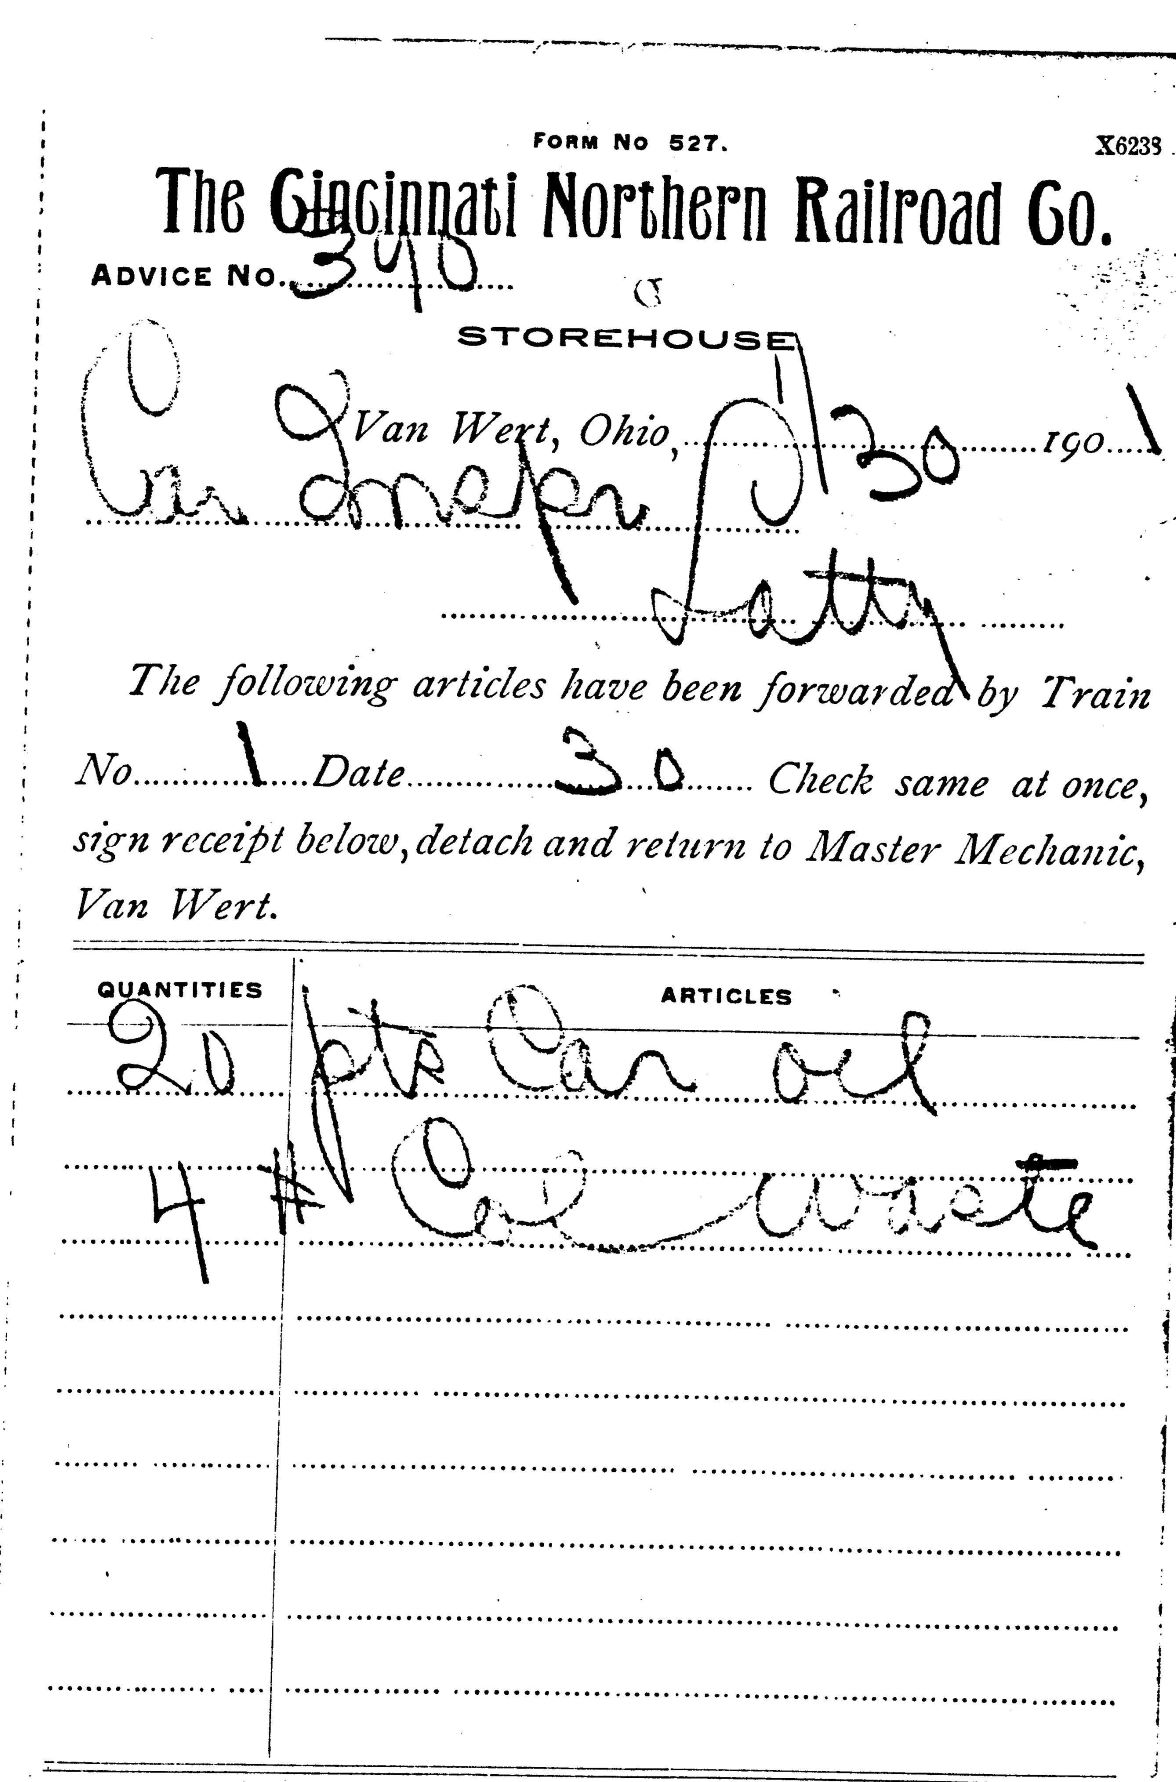 FORM NO 527.
X6238
The Cincinnati Northern Railroad Co.
ADVICE NO. 390
STOREHOUSE
Van Wert, Ohio, /30 1901
Car Inspr
Latty
The following articles have been forwarded by Train
No. 1 Date 30 Check same at once,
sign receipt below, detach and return to Master Mechanic,
Van Wert.
QUANTITIES ARTICLES
20 pts Car oil
4 # Col waste